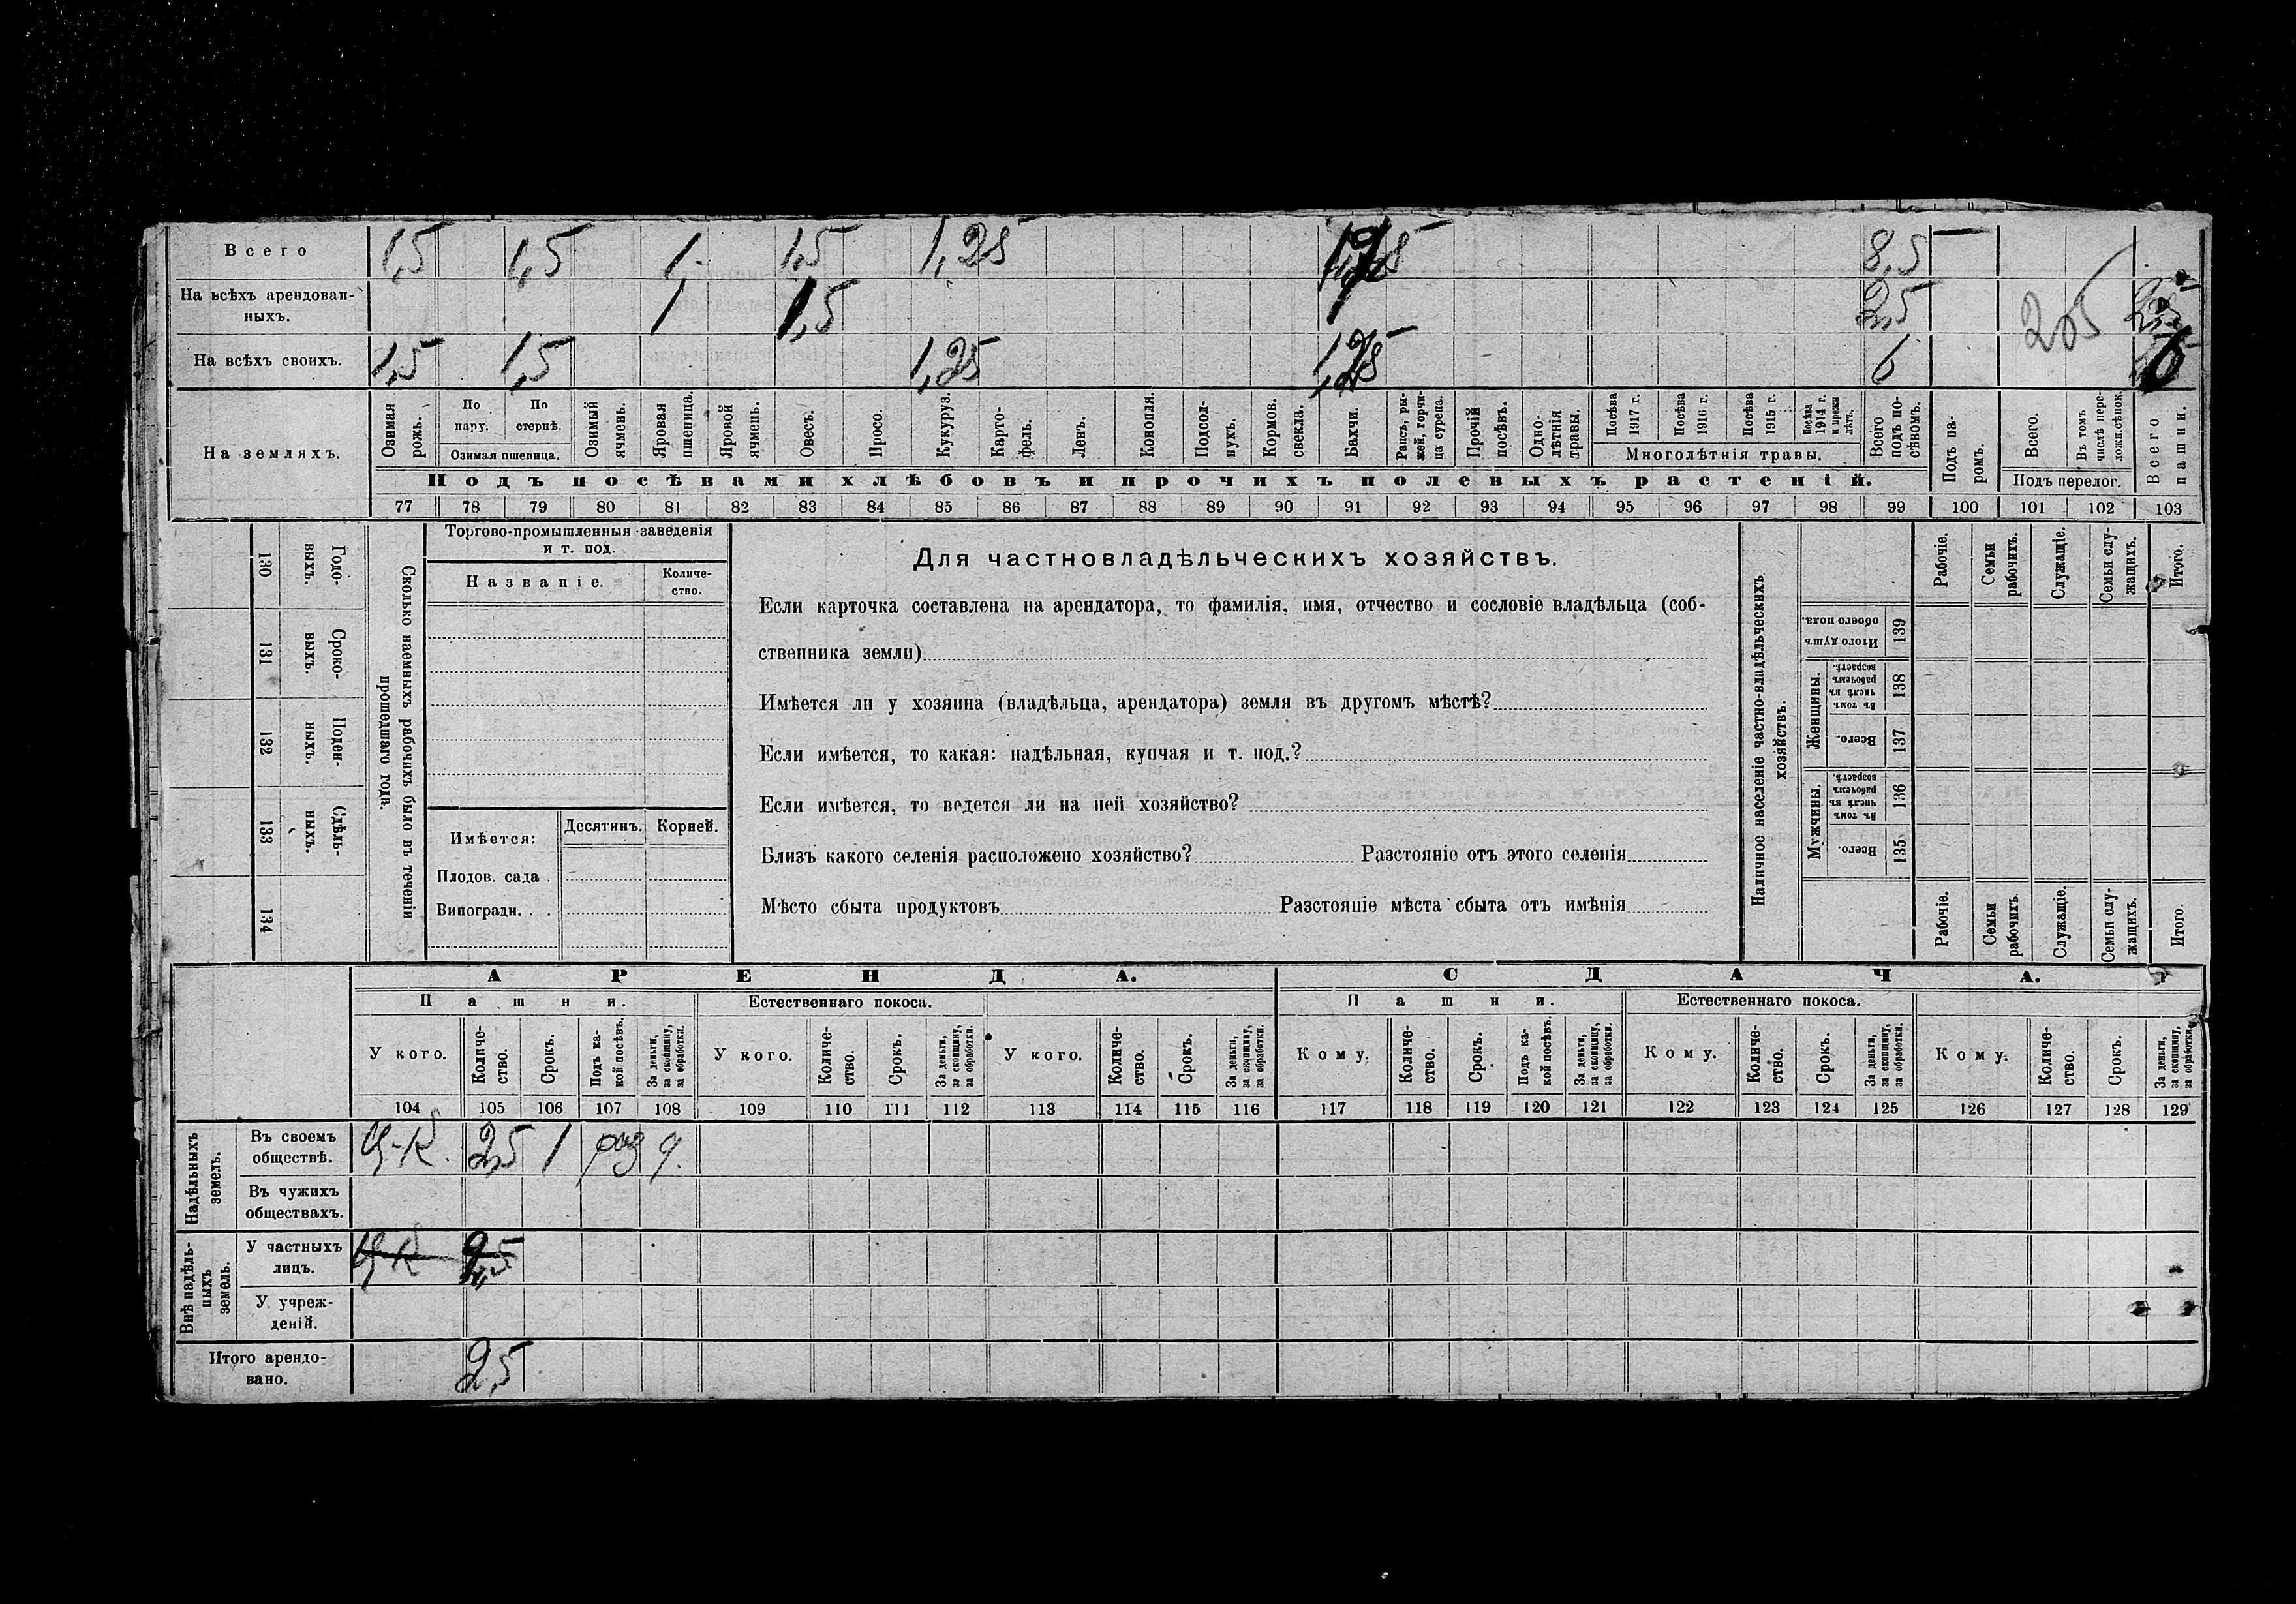 Всего 1,5 1,5 1 1,5 1,25 8,5
На всѣхъ арендован- 1 1,5 2,5
ныхъ. 205
На всѣхъ своихъ. 1,5 1,5 1,25 6 6
На земляхъ.
Озимая рожь.
По пару.
По стернѣ.
Озимая пшеница.
Озимый ячмень.
Яровая пшеница.
Яровой ячмень.
Овесъ.
Просо.
Кукуруз.
Карто-
фель.
Ленъ.
Конопля.
Подсол-
нухъ.
Кормов.
свекла.
Бахчи.
Рапсъ, ры-
жей, горчи-
ца сурепа.
Прочій
посѣвъ.
Одно-
лѣтнія
травы.
Посѣва
1917 г.
Посѣва
1916 г.
Посѣва
1915 г.
Посѣва
1914 г.
и прежн
лѣтъ.
Многолѣтнія травы.
Всего
подъ по-
сѣвомъ.
Подъ па-
ромъ.
Всего.
Въ томъ
числѣ пере-
ложн. сѣнок.
Подъ перелог.
Всего
пашни.
Подъ посѣвами хлѣбовъ и прочихъ полевыхъ растеній.
77 78 79 80 81 82 83 84 85 86 87 88 89 90 91 92 93 94 95 96 97 98 99 100 101 102 103
130 Годо-
выхъ.
131 Сроко-
выхъ.
132 Поден-
ныхъ.
133 Сдѣль-
ныхъ.
134
Сколько наемныхъ рабочихъ было въ теченіи
прошедшаго года.
Торгово-промышленныя заведенія
и т. под.
Названіе.
Количе-
ство.
Имѣется:
Десятинъ.
Корней.
Плодов. сада
Виноградн.
Для частновладѣльческихъ хозяйствъ.
Если карточка составлена на арендатора, то фамилія, имя, отчество и сословіе владѣльца (соб-
ственника земли)
Имѣется ли у хозяина (владѣльца, арендатора) земля въ другомъ мѣстѣ?
Если имѣется, то какая: надѣльная, купчая и т. под.?
Если имѣется, то ведется ли на ней хозяйство?
Близъ какого селенія расположено хозяйство? Разстояніе отъ этого селенія
Мѣсто сбыта продуктовъ Разстояніе мѣста сбыта отъ имѣнія
Наличное населеніе частно-владѣльческихъ
хозяйствъ.
Рабочіе.
Семьи
рабочихъ.
Служащіе.
Семьи слу-
жащихъ.
Итого.
Итого душъ
обоего пола.
139
Женщины.
Въ томъ
числѣ въ
рабочемъ
возрастѣ.
138
Всего.
137
Мужчины.
Въ томъ
числѣ въ
рабочемъ
возрастѣ.
136
Всего.
135
Рабочіе.
Семьи
рабочихъ.
Служащіе.
Семьи слу-
жащихъ.
Итого.
АРЕНДА. СДАЧА.
Пашни. Естественнаго покоса. Пашни. Естественнаго покоса.
У кого.
Количе-
ство.
Срокъ.
Подъ ка-
кой посѣвъ.
За деньги,
за скопщину,
за обработки.
У кого.
Количе-
ство.
Срокъ.
За деньги,
за скопщину,
за обработки.
У кого.
Количе-
ство.
Срокъ.
За деньги,
за скопщину,
за обработки.
Кому.
Количе-
ство.
Срокъ.
Подъ ка-
кой посѣвъ.
За деньги,
за скопщину,
за обработки.
Кому.
Количе-
ство.
Срокъ.
За деньги,
за скопщину,
за обработки.
Кому.
Количе-
ство.
Срокъ.
За деньги,
за скопщину,
за обработки.
104 105 106 107 108 109 110 111 112 113 114 115 116 117 118 119 120 121 122 123 124 125 126 127 128 129
Надѣльныхъ
земель.
Въ своемъ
обществѣ. 2,5 1
Въ чужихъ
обществахъ.
Внѣ надѣль-
ныхъ
земель.
У частныхъ
лицъ. 2,5
У учреж-
деній.
Итого арендо-
вано. 2,5